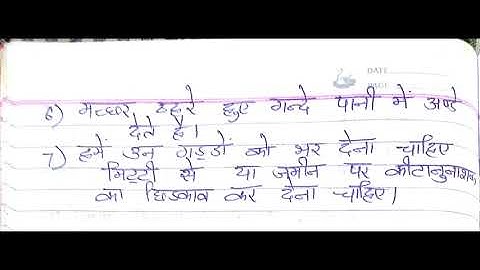 DATE
PAGE
6) मच्छर ठहरे हुए गन्दे पानी में अण्डे
देते है।
7) हमें उन गड्डों को भर देना चाहिए
मिट्टी से या जमीन पर कीटानुनाशक
का छिड़काव कर देना चाहिए।